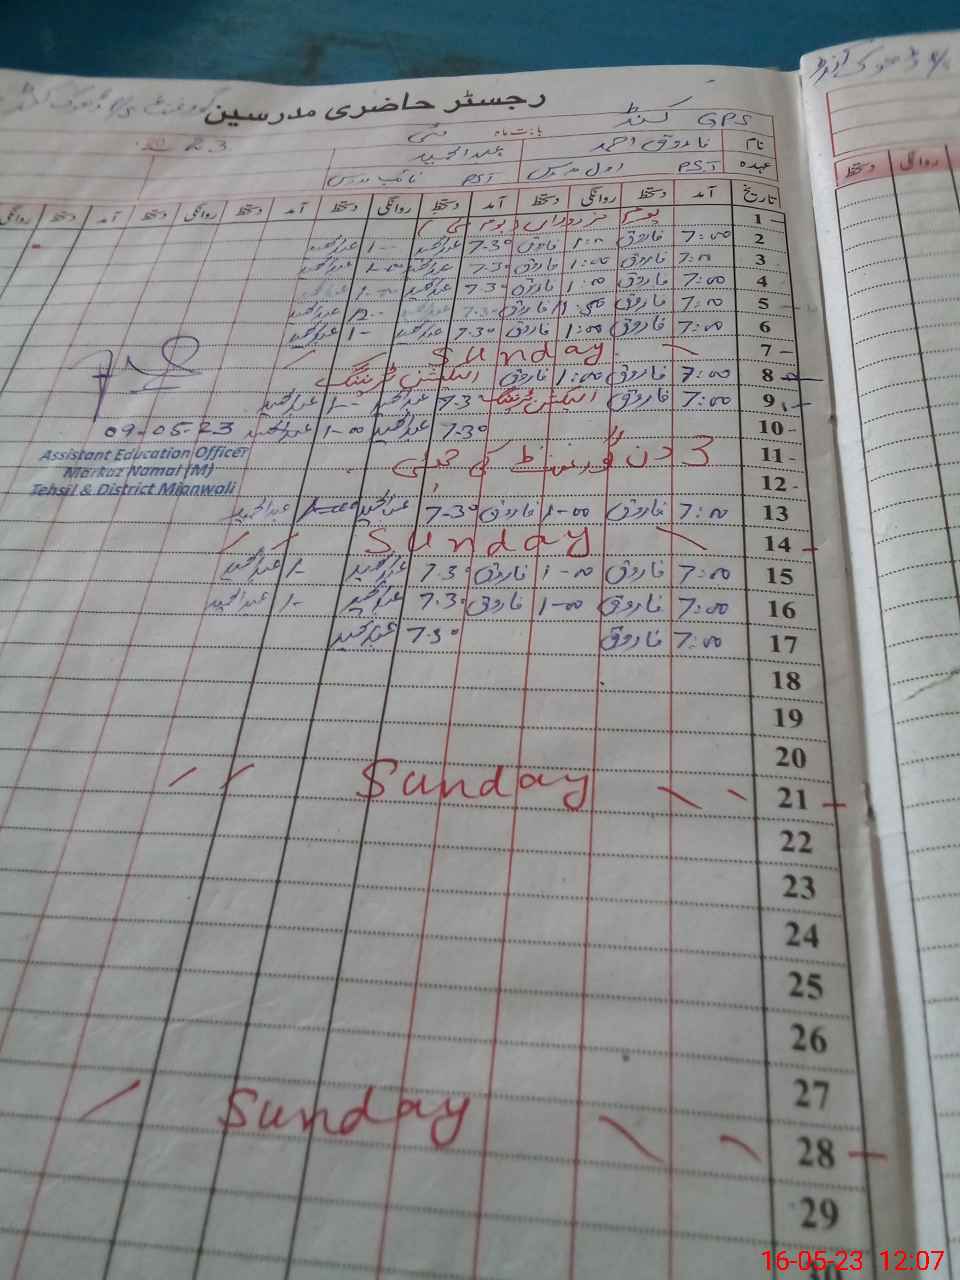 رجسٹر حاضری مدرسین
GPS کنڈ
بابت ماہ مئی 23
نام فاروق احمد عبدالحمید
عہدہ PST اول مدرس PST نائب مدرس
تاریخ آمد دستخط روانگی دستخط آمد دستخط روانگی دستخط آمد دستخط روانگی دستخط آمد دستخط روانگی
1 یوم مزدوراں (یوم مئی)
2 7:00 فاروق 1:00 فاروق 7.30 عبدالحمید 1-- عبدالحمید
3 7:00 فاروق 1:00 فاروق 7.30 عبدالحمید 1-00 عبدالحمید
4 7:00 فاروق 1:00 فاروق 7.30 عبدالحمید 1-- عبدالحمید
5 7:00 فاروق فاروق 7.30 عبدالحمید عبدالحمید
6 7:00 فاروق 1:00 فاروق 7.30 عبدالحمید 1- عبدالحمید
7 Sunday
8 7:00 فاروق 1:00 فاروق الیکشن ٹریننگ
9 7:00 فاروق الیکشن ٹریننگ 7.30 عبدالحمید 1-- عبدالحمید
10 7.30 عبدالحمید 1-00 عبدالحمید
09-05-23
Assistant Education Officer
Markaz Namal (M)
Tehsil & District Mianwali
11 3 دن گورنمنٹ کی چھٹی
12
13 7:00 فاروق 1-00 فاروق 7-30 عبدالحمید 1-00 عبدالحمید
14 Sunday
15 7:00 فاروق 1-00 فاروق 7.30 عبدالحمید 1- عبدالحمید
16 7:00 فاروق 1-00 فاروق 7.30 عبدالحمید 1- عبدالحمید
17 7:00 فاروق 7.30 عبدالحمید
18
19
20
21 Sunday
22
23
24
25
26
27
28 Sunday
29
روانگی دستخط
16-05-23 12:07